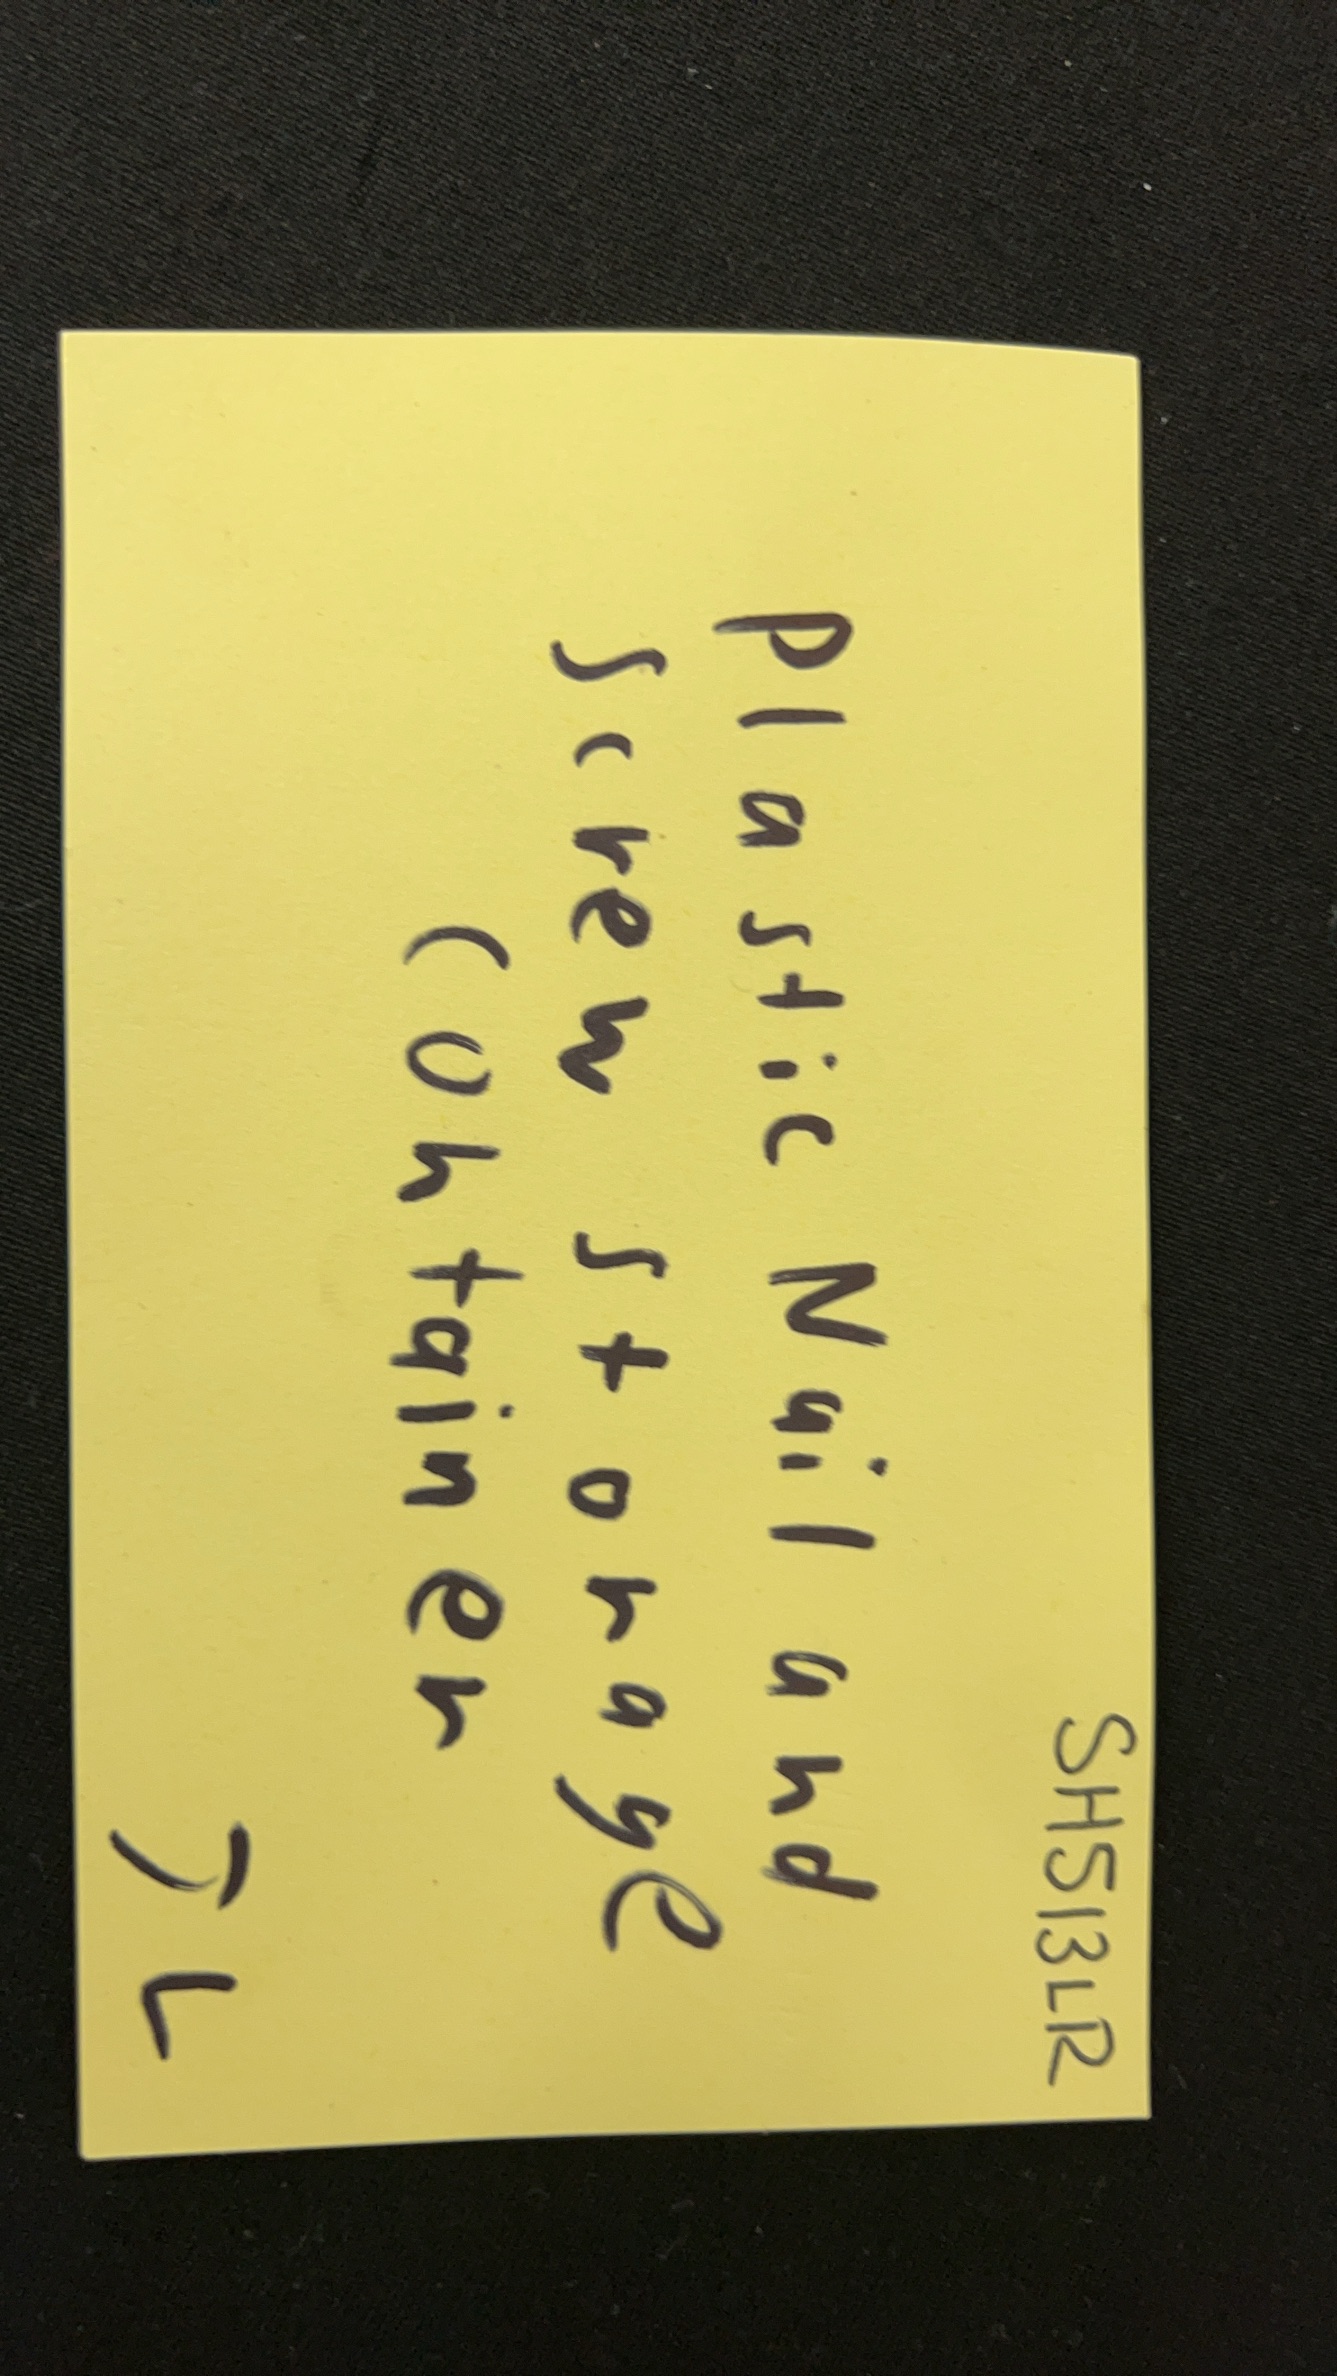 SH513LR
Plastic Nail and
Screw Storage
Container
JL